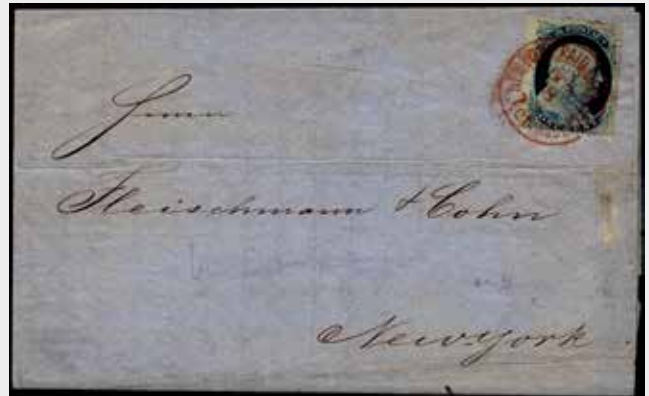 Herren
Fleischmann & Cohn
New York